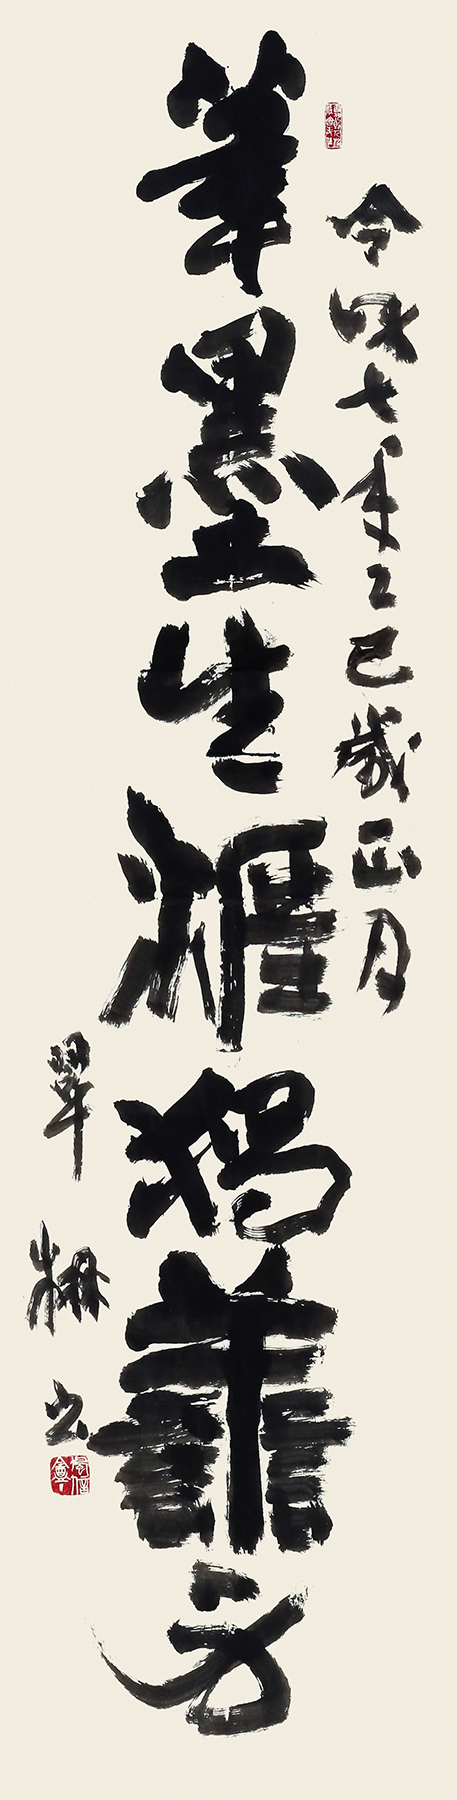 令和七年乙巳歳正月
筆墨生涯獨善身
翠書